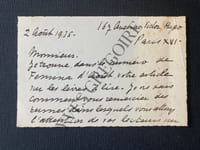 167 Avenue Victor Hugo
2 Août 1935. Paris XVI
Monsieur.
Je trouve dans le numéro de
Femina d'Août votre article
sur les livres à lire. Je ne sais
comment vous remercier des
termes dans lesquels vous attirez
l'attention de vos lecteurs sur
GRÉGOIRE